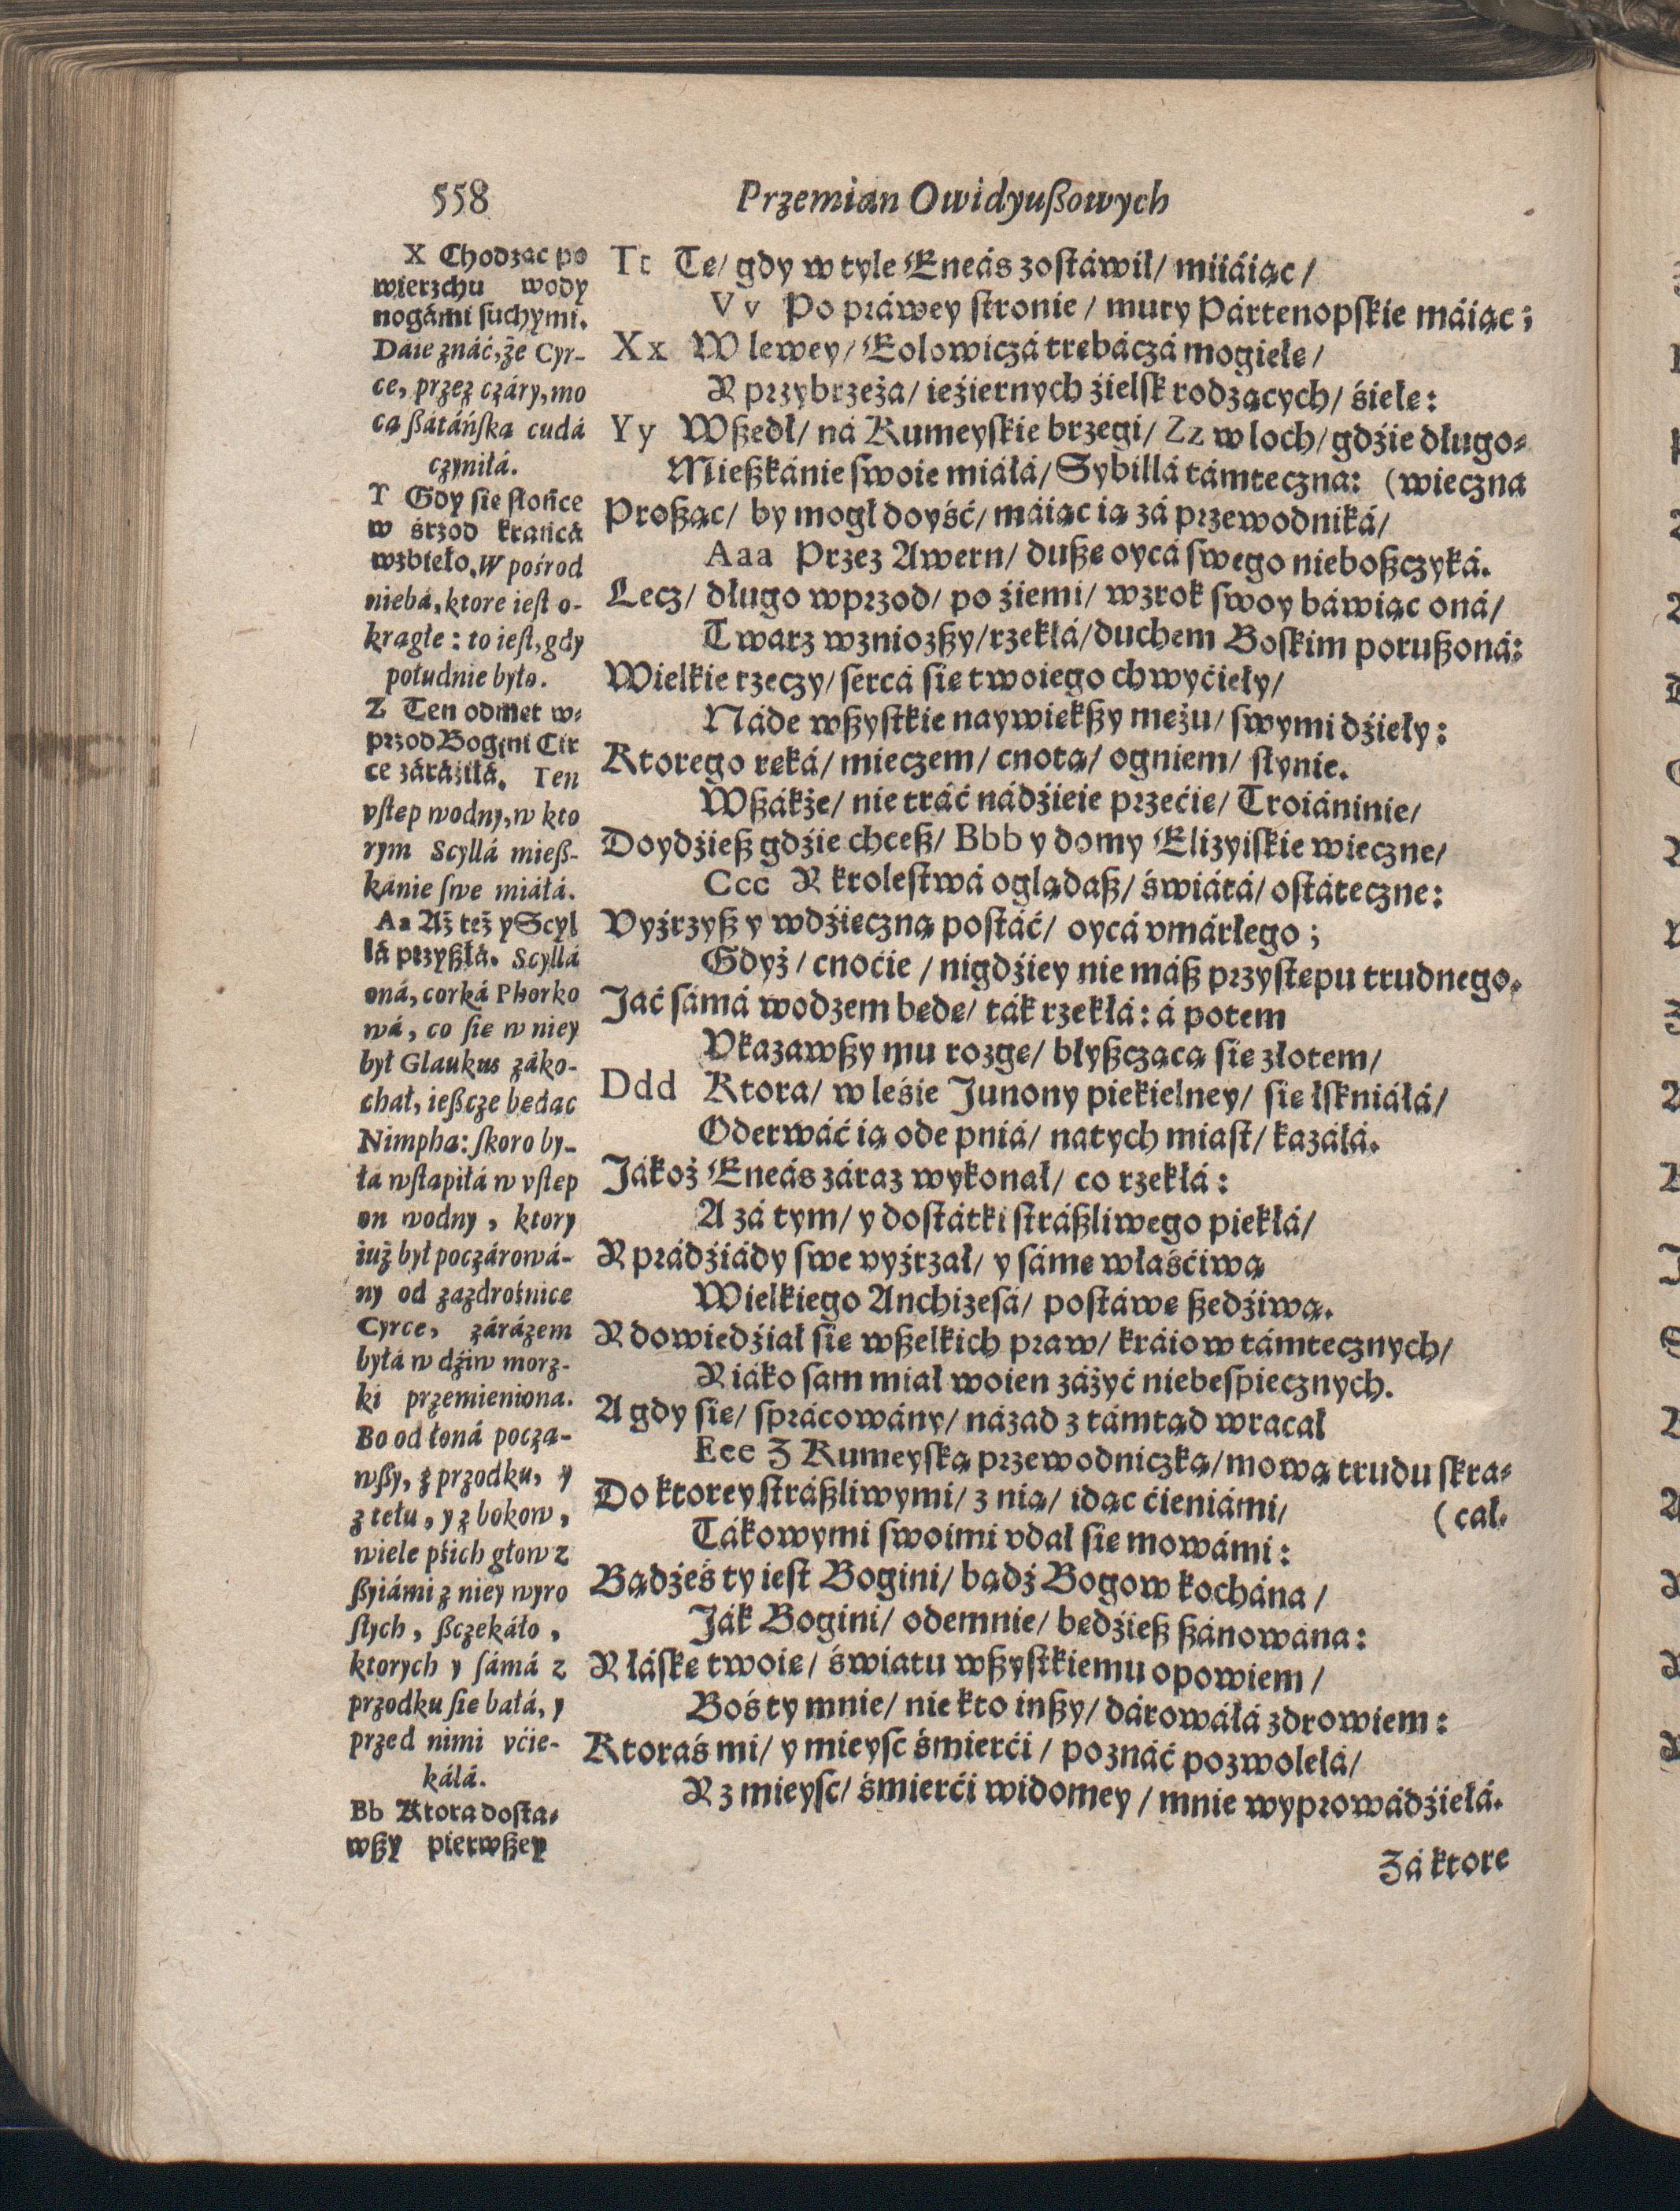 558
Przemian Owidyußowych
X Chodząc po
wierzchu wody
nogámi ſuchymi.
Dáie znáć, że Cyr-
ce, przez czáry, mo
cą ßátáńſką cudá
czyniłá.
Y Gdy ſie słońce
w śrzod krańcá
wzbieło. W pośrod
niebá, ktore ieſt o-
krągłe: to ieſt, gdy
południe było.
Z Ten odmęt w⸗
przod Bogini Cir
ce záráźiłá. Ten
vſtęp wodny, w kto
rym Scyllá mieß-
kánie ſwe miáłá.
Aa Aż też y Scyl
lá przyßłá. Scyllá
oná, corká Phorko
wá, co ſie w niey
był Glaukus záko-
chał, ießcze będąc
Nimphą: ſkoro by-
łá wſtąpiłá w vſtęp
on wodny, ktory
iuż był poczárowá-
ny od zazdrośnice
Cyrce, zárázem
byłá w dźiw morz-
ki przemieniona.
Bo od łoná począ-
wßy, z przodku, y
z tełu, y z bokow,
wiele pśich głow z
ßyiámi z niey wyro
ſłych, ßczekáło,
ktorych y ſámá z
przodku ſie bałá, y
przed nimi vćie-
káłá.
Bb Ktora doſta⸗
wßy pierwßey
Tt Te/ gdy w tyle Eneás zoſtáwił/ miiáiąc/
Vv Po práwey ſtronie/ mury Pártenopſkie máiąc;
Xx W lewey/ Eolowiczá trębáczá mogiełę/
Y przybrzeża/ ieźiernych źielſk rodzących/ śiełę:
Yy Wßedł/ ná Kumeyſkie brzegi/ Zz w loch/ gdźie długo⸗
Mießkánie ſwoie miáłá/ Sybillá támteczna: (wieczna
Proßąc/ by mogł doyść/ máiąc ią zá przewodniká/
Aaa Przez Awern/ duße oycá ſwego nieboßczyká.
Lecz/ długo wprzod/ po źiemi/ wzrok ſwoy báwiąc oná/
Twarz wzniozßy/ rzekłá/ duchem Boſkim porußoná:
Wielkie rzeczy/ ſercá ſie twoiego chwyćieły/
Náde wßyſtkie naywiekßy mężu/ ſwymi dźieły:
Ktorego ręká/ mieczem/ cnotą/ ogniem/ słynie.
Wßákże/ nie tráć nádźieie przećie/ Troiáninie/
Doydźieß gdźie chceß/ Bbb y domy Elizyiſkie wieczne/
Ccc Y kroleſtwá oglądaß/ świátá/ oſtáteczne:
Vyźrzyß y wdźięczną poſtáć/ oycá vmárłego;
Gdyż/ cnoćie/ nigdźiey nie máß przyſtępu trudnego.
Jáć ſámá wodzem będę/ ták rzekłá: á potem
Vkazawßy mu rozgę/ błyßczącą ſie złotem/
Ddd Ktora/ w leśie Junony piekielney/ ſie łſkniáłá/
Oderwáć ią ode pniá/ natych miaſt/ kazáłá.
Jákoż Eneás záraz wykonał/ co rzekłá:
A zá tym/ y doſtátki ſtráßliwego piekłá/
Y prádźiády ſwe vyźrzał/ y ſámę właśćiwą
Wielkiego Anchizeſá/ poſtáwę ßedźiwą.
Y dowiedźiał ſie wßelkich praw/ kráiow támtecznych/
Y iáko ſam miał woien záżyć niebeſpiecznych.
A gdy ſie/ ſprácowány/ názad z támtąd wracał
Eee Z Kumeyſką przewodniczką/ mową trudu ſkra⸗
Do ktorey ſtráßliwymi/ z nią/ idąc ćieniámi/ (cał.
Tákowymi ſwoimi vdał ſie mowámi:
Bądźeś ty ieſt Bogini/ bądź Bogow kochána/
Ják Bogini/ odemnie/ będźieß ßánowána:
Y łáſkę twoię/ światu wßyſtkiemu opowiem/
Boś ty mnie/ nie kto inßy/ dárowáłá zdrowiem:
Ktoraś mi/ y mieyſc śmierći/ poznáć pozwolełá/
Y z mieyſc/ śmierći widomey/ mnie wyprowádźiełá.
Zá ktore